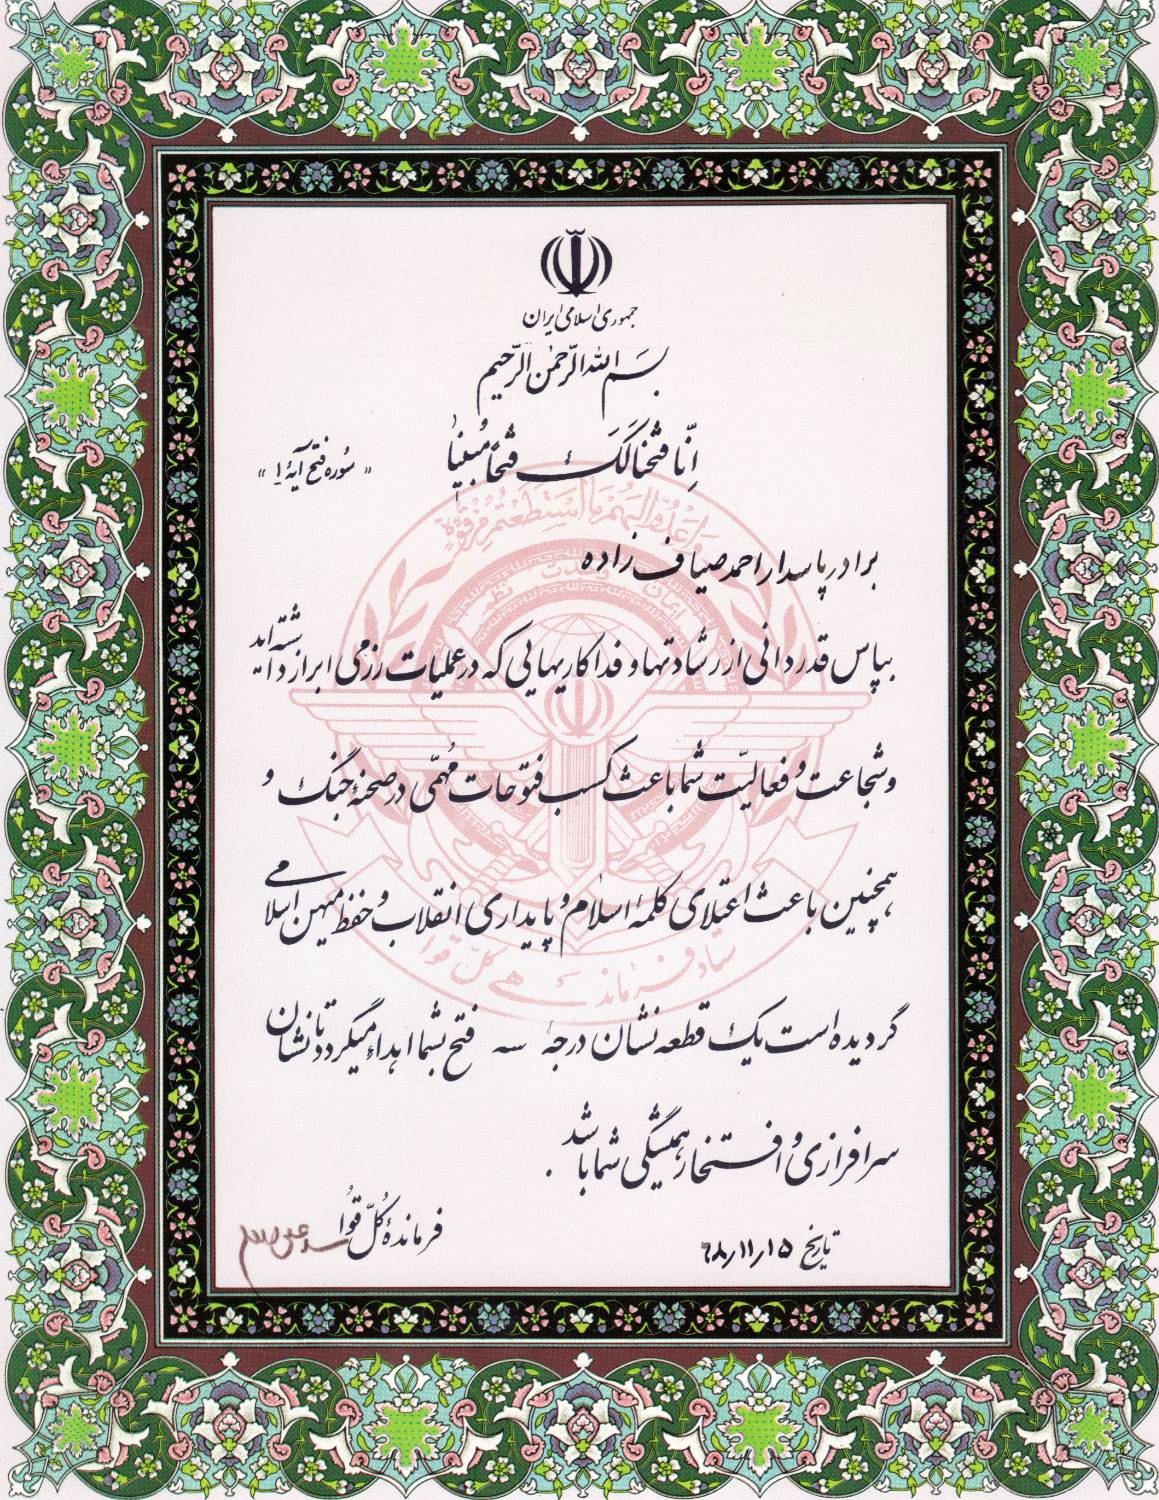 جمهوری اسلامی ایران
بسم الله الرّحمن الرّحیم
اِنّا فَتَحنا لَکَ فَتحاً مُبیناً « سُوره فتح آیهٔ ۱ »
برادر پاسدار احمد صیاف زاده
بپاس قدردانی از رشادتها و فداکاریهایی که در عملیات رزمی ابراز داشته‌اید
و شجاعت و فعالیّت شما باعث کسب فتوحات مُهمّی در صحنهٔ جنگ و
همچنین باعث اعتلای کلمهٔ اسلام و پایداری انقلاب و حفظ میهن اسلامی
گردیده است یک قطعه نشان درجهٔ سه فتح بشما اهداء میگردد تا نشان
سرافرازی و افتخار همیشگی شما باشد .
فرماندهٔ کُلّ قُوا
تاریخ ۶۸/۱۱/۱۵
وَاَعِدُّوا لَهُم مَا استَطَعتُم مِن قُوَّة
ایمان وحدت نظم
ستاد فرماندهی کلّ قوا